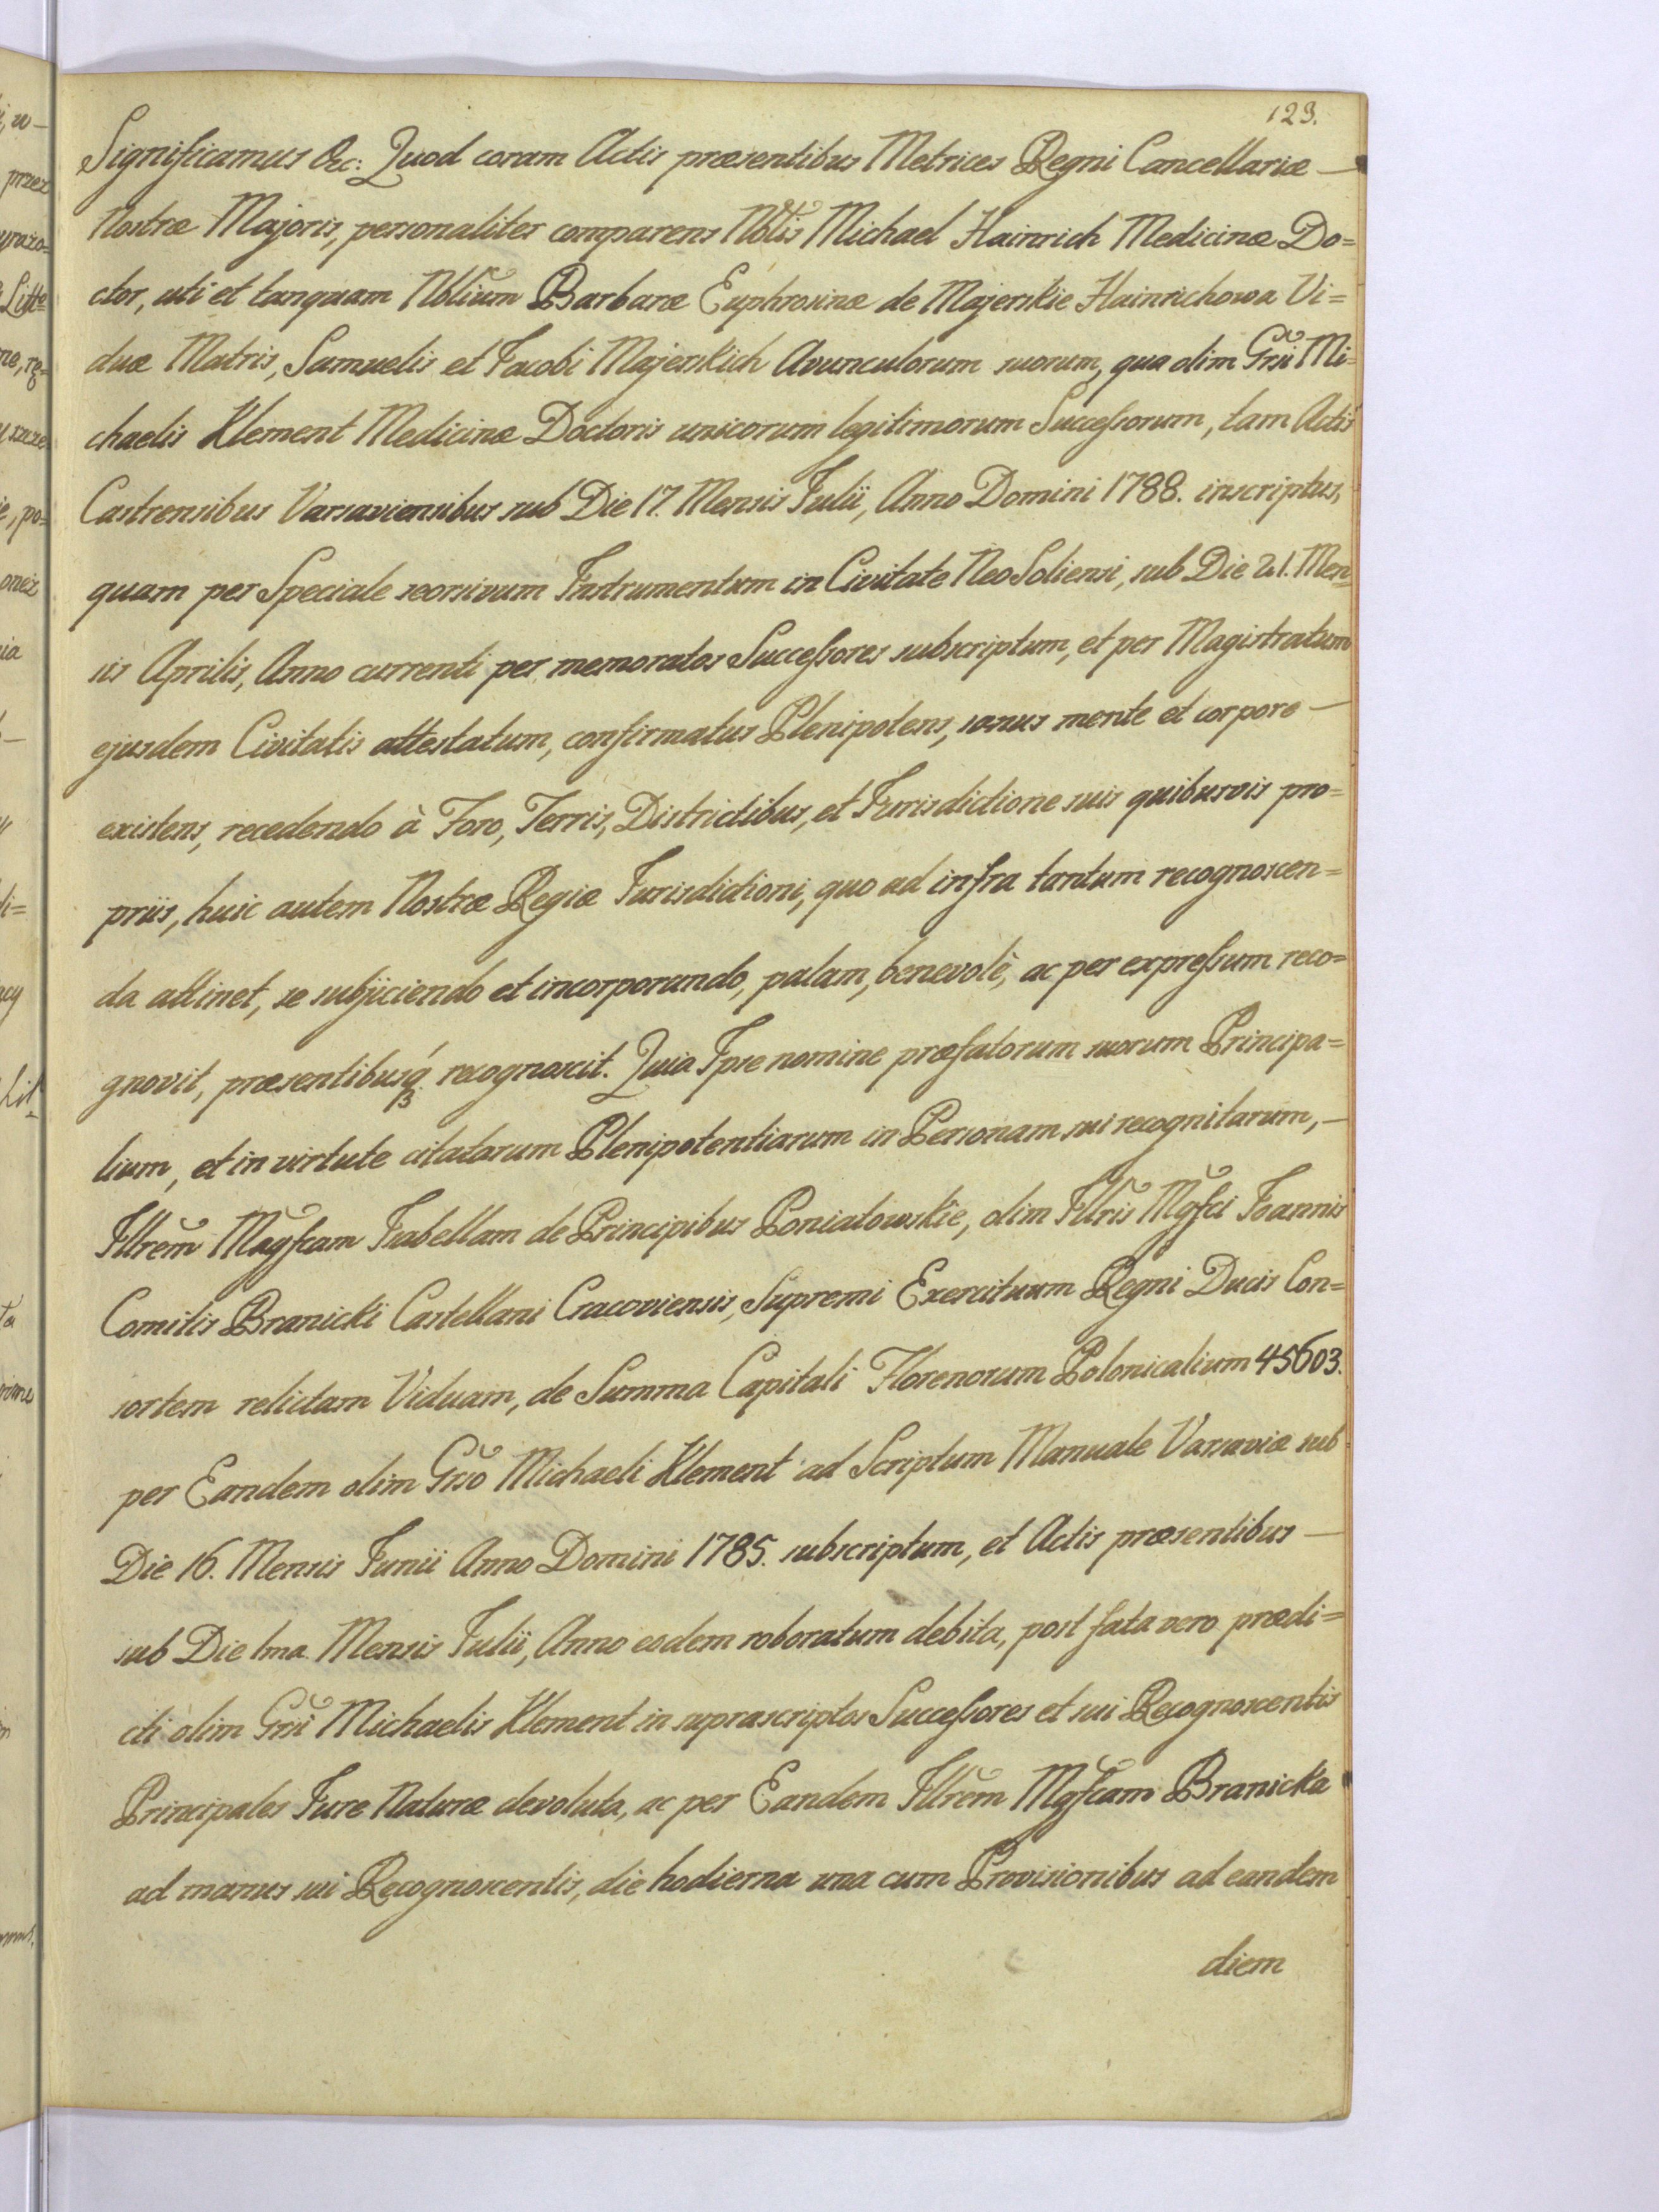 123.
Significamus &c: Quod coram Actis præsentibus Metrices Regni Cancellariæ —
Nostræ Majoris, personaliter comparens Nbłis Michael Hainrich Medicinæ Do=
ctor, uti et tanquam Nblium Barbaræ Euphrosinæ de Majerskie Hainrichowa Vi=
duæ Matris, Samuelis et Jacobi Majerskich Avunculorum suorum, qua olim Grsi Mi=
chaelis Klement Medicinæ Doctoris unicorum legitimorum Succeſsorum, tam Actis
Castrensibus Varsaviensibus sub Die 17. Mensis Julii, Anno Domini 1788. inscriptus,
quam per Speciale seorsivum Instrumentum in Civitate NeoSoliensi, sub Die 21. Men=
sis Aprilis, Anno currenti per memoratos Succeſsores subscriptum, et per Magistratum
ejusdem Civitatis attestatum, confirmatus Plenipotens, sanus mente et corpore —
existens, recedendo à Foro, Terris, Districtibus, et Jurisdictione suis quibusvis pro=
priis, huic autem Nostræ Regiæ Jurisdictioni, quo ad infra tantum recognoscen=
da attinet, se subjiciendo et incorporando, palam, benevolè, ac per expreſsum reco=
gnovit, præsentibusq́ʒ recognoscit. Quia Ipse nomine præfatorum suorum Principa=
lium, et in virtute citatarum Plenipotentiarum in Personam sui recognitarum, —
Illrem Magfcam Izabellam de Principibus Poniatowskie, olim Illris Mgfci Joannis
Comitis Branicki Castellani Cracoviensis, Supremi Exercituum Regni Ducis Con=
sortem relictam Viduam, de Summa Capitali Florenorum Polonicalium 45603.
per Eandem olim Grso Michaeli Klement ad Scriptum Manuale Varsaviæ sub
Die 16. Mensis Junii Anno Domini 1785. subscriptum, et Actis præsentibus —
sub Die 1ma Mensis Julii, Anno eodem roboratum debita, post fata vero prædi=
cti olim Grsi Michaelis Klement in suprascriptos Succeſsores et sui Recognoscentis
Principales Jure Naturæ devoluta, ac per Eandem Illrem Mgfcam Branicka
ad manus sui Recognoscentis, die hodierna una cum Provisionibus ad eandem
diem